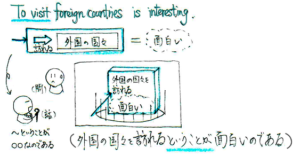 To visit foreign countries is interesting.
訪れる 外国の国々 = 面白い
外国の国々を
訪れる
面白い
(聞)
(話)
〜ということが
○○なのである
(外国の国々を訪れるということが面白いのである)